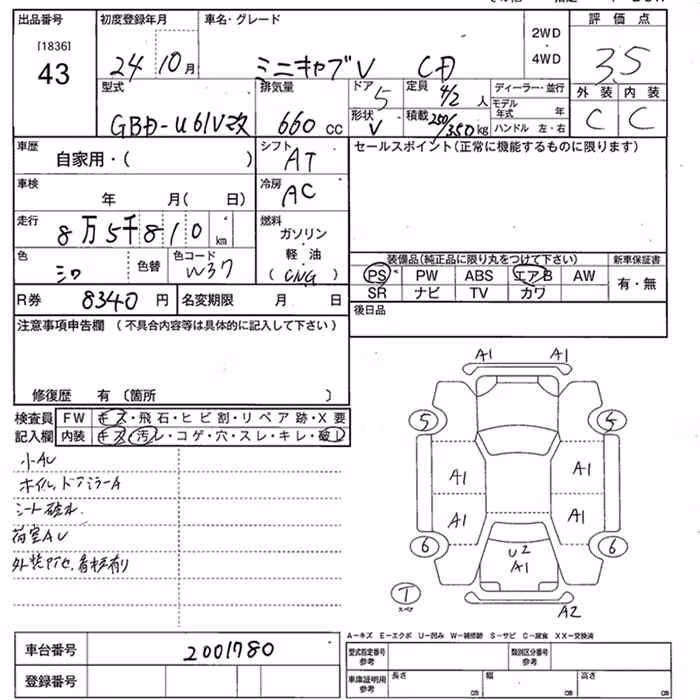 出品番号 初度登録年月 車名・グレード 2WD・4WD 評価点
[1836]
43 24 10月 ミニキャブV CD 3.5
型式 排気量 ドア 5 定員 4/2人 ディーラー・並行 外装 内装
モデル年式 年
GBD-U61V改 660cc 形状 V 積載 250/350kg ハンドル 左・右 C C
車歴 シフト セールスポイント(正常に機能するものに限ります)
自家用・( ) AT
車検 冷房
年 月( 日) AC
走行 燃料
8万5千810km ガソリン・軽油
色 色替 色コード (CNG)
シロ W37
装備品(純正品に限り丸をつけて下さい) 新車保証書
PS PW ABS エアB AW 有・無
SR ナビ TV カワ
R券 8340円 名変期限 月 日
後日品
注意事項申告欄(不具合内容等は具体的に記入して下さい)
修復歴 有〔箇所 〕
検査員 FW キズ・飛石・ヒビ割・リペア跡・X要
記入欄 内装 キズ・汚レ・コゲ・穴・スレ・キレ・破レ
小AU
ホイル、ドアミラーA
シート破れ
荷室AU
A1 A1
5 5
A1 A1
A1 A1
6 6
U2
A1
T
スペア
A2
A－キズ E－エクボ U－凹み W－補修跡 S－サビ C－腐食 XX－交換済
車台番号 2001780
型式指定番号 参考 類別区分番号 参考
登録番号
車庫証明用 参考 長さ cm 幅 cm 高さ cm